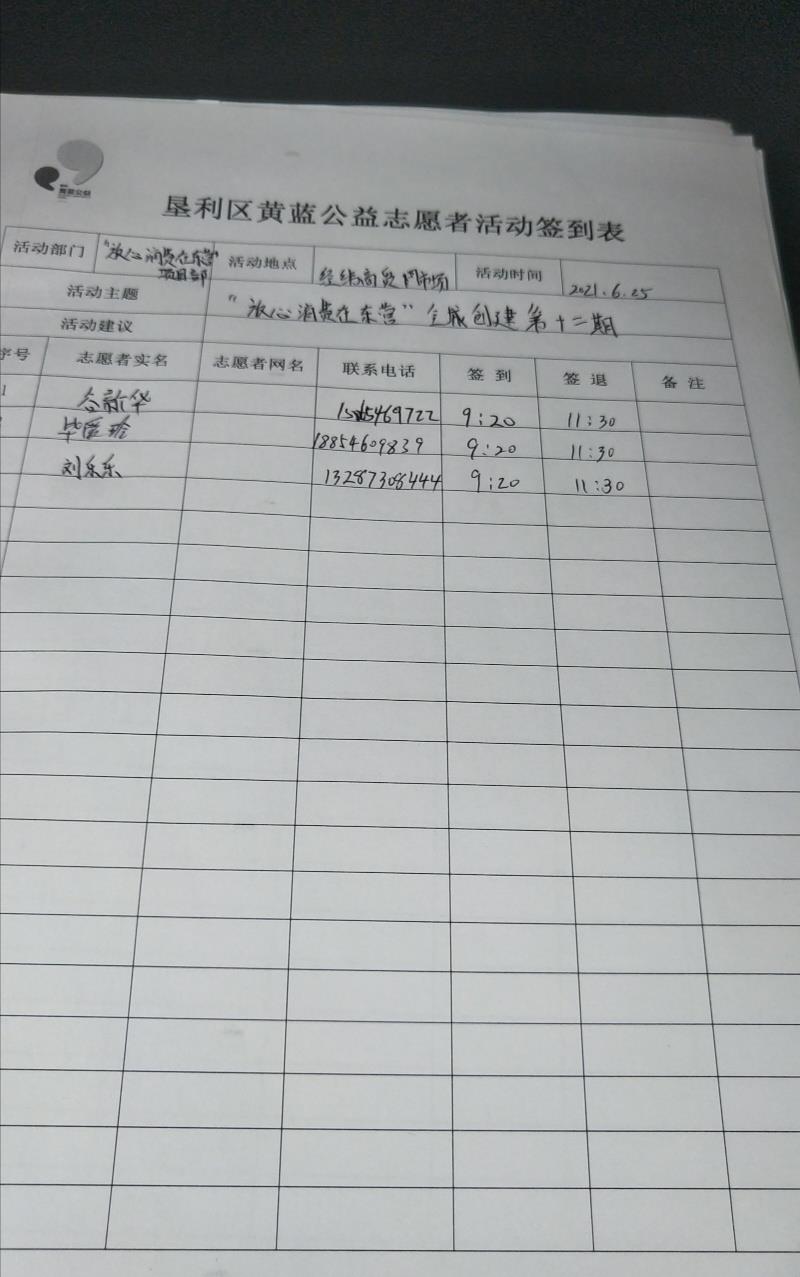 黄蓝公益
垦利区黄蓝公益志愿者活动签到表
活动部门 "放心消费在东营"项目部 活动地点 经纬商贸门市场 活动时间 2021.6.25
活动主题 "放心消费在东营"全域创建第十二期
活动建议
序号 志愿者实名 志愿者网名 联系电话 签到 签退 备注
1 谷新华 9:20 11:30
毕 玲 18854609839 9:20 11:30
刘乐乐 13287308444 9:20 11:30